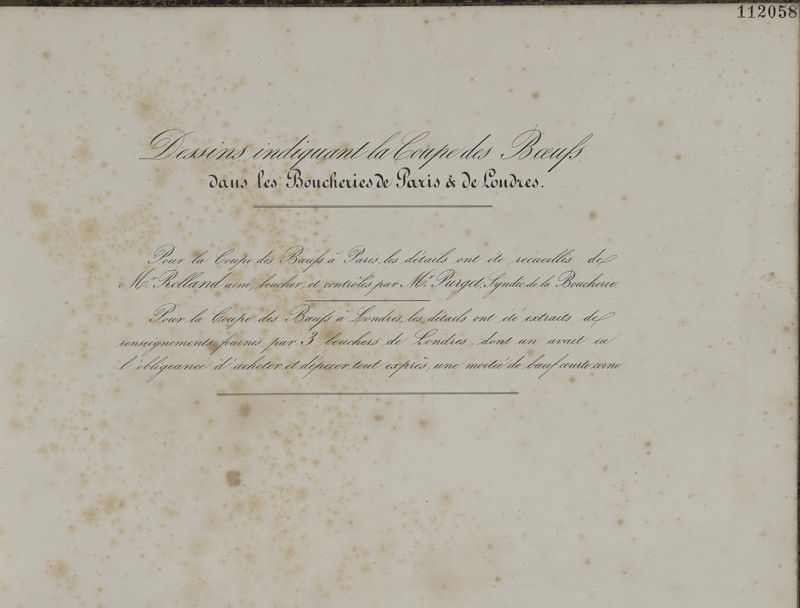 112058
Dessins indiquant la Coupe des Bœufs
dans les Boucheries de Paris & de Londres.
Pour la Coupe des Bœufs à Paris, les détails ont été recueillis de
Mr. Rolland ainé, boucher, et contrôlés par Mr. Purget, Syndic de la Boucherie.
Pour la Coupe des Bœufs à Londres, les détails ont été extraits de
renseignements fournis par 3 bouchers de Londres, dont un avait eu
l'obligeance d'acheter et dépecer tout exprès, une moitié de bœuf courte corne